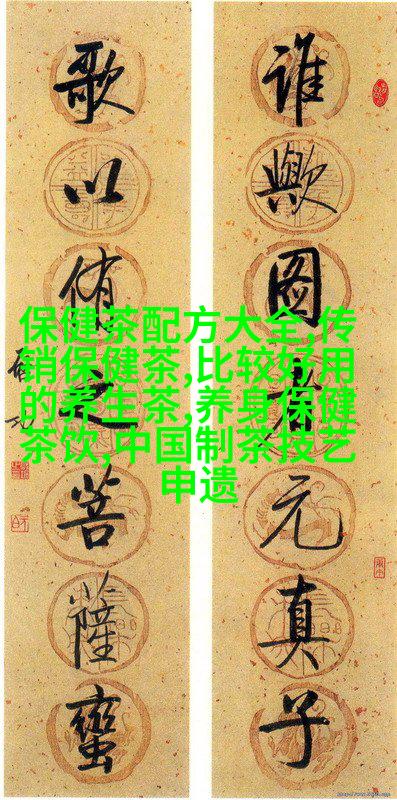 谁歟圖者元真子
歌以侑之菩薩蠻
保健茶配方大全,传
销保健茶,比较好用
的养生茶,养身保健
茶饮,中国制茶技艺
申遗